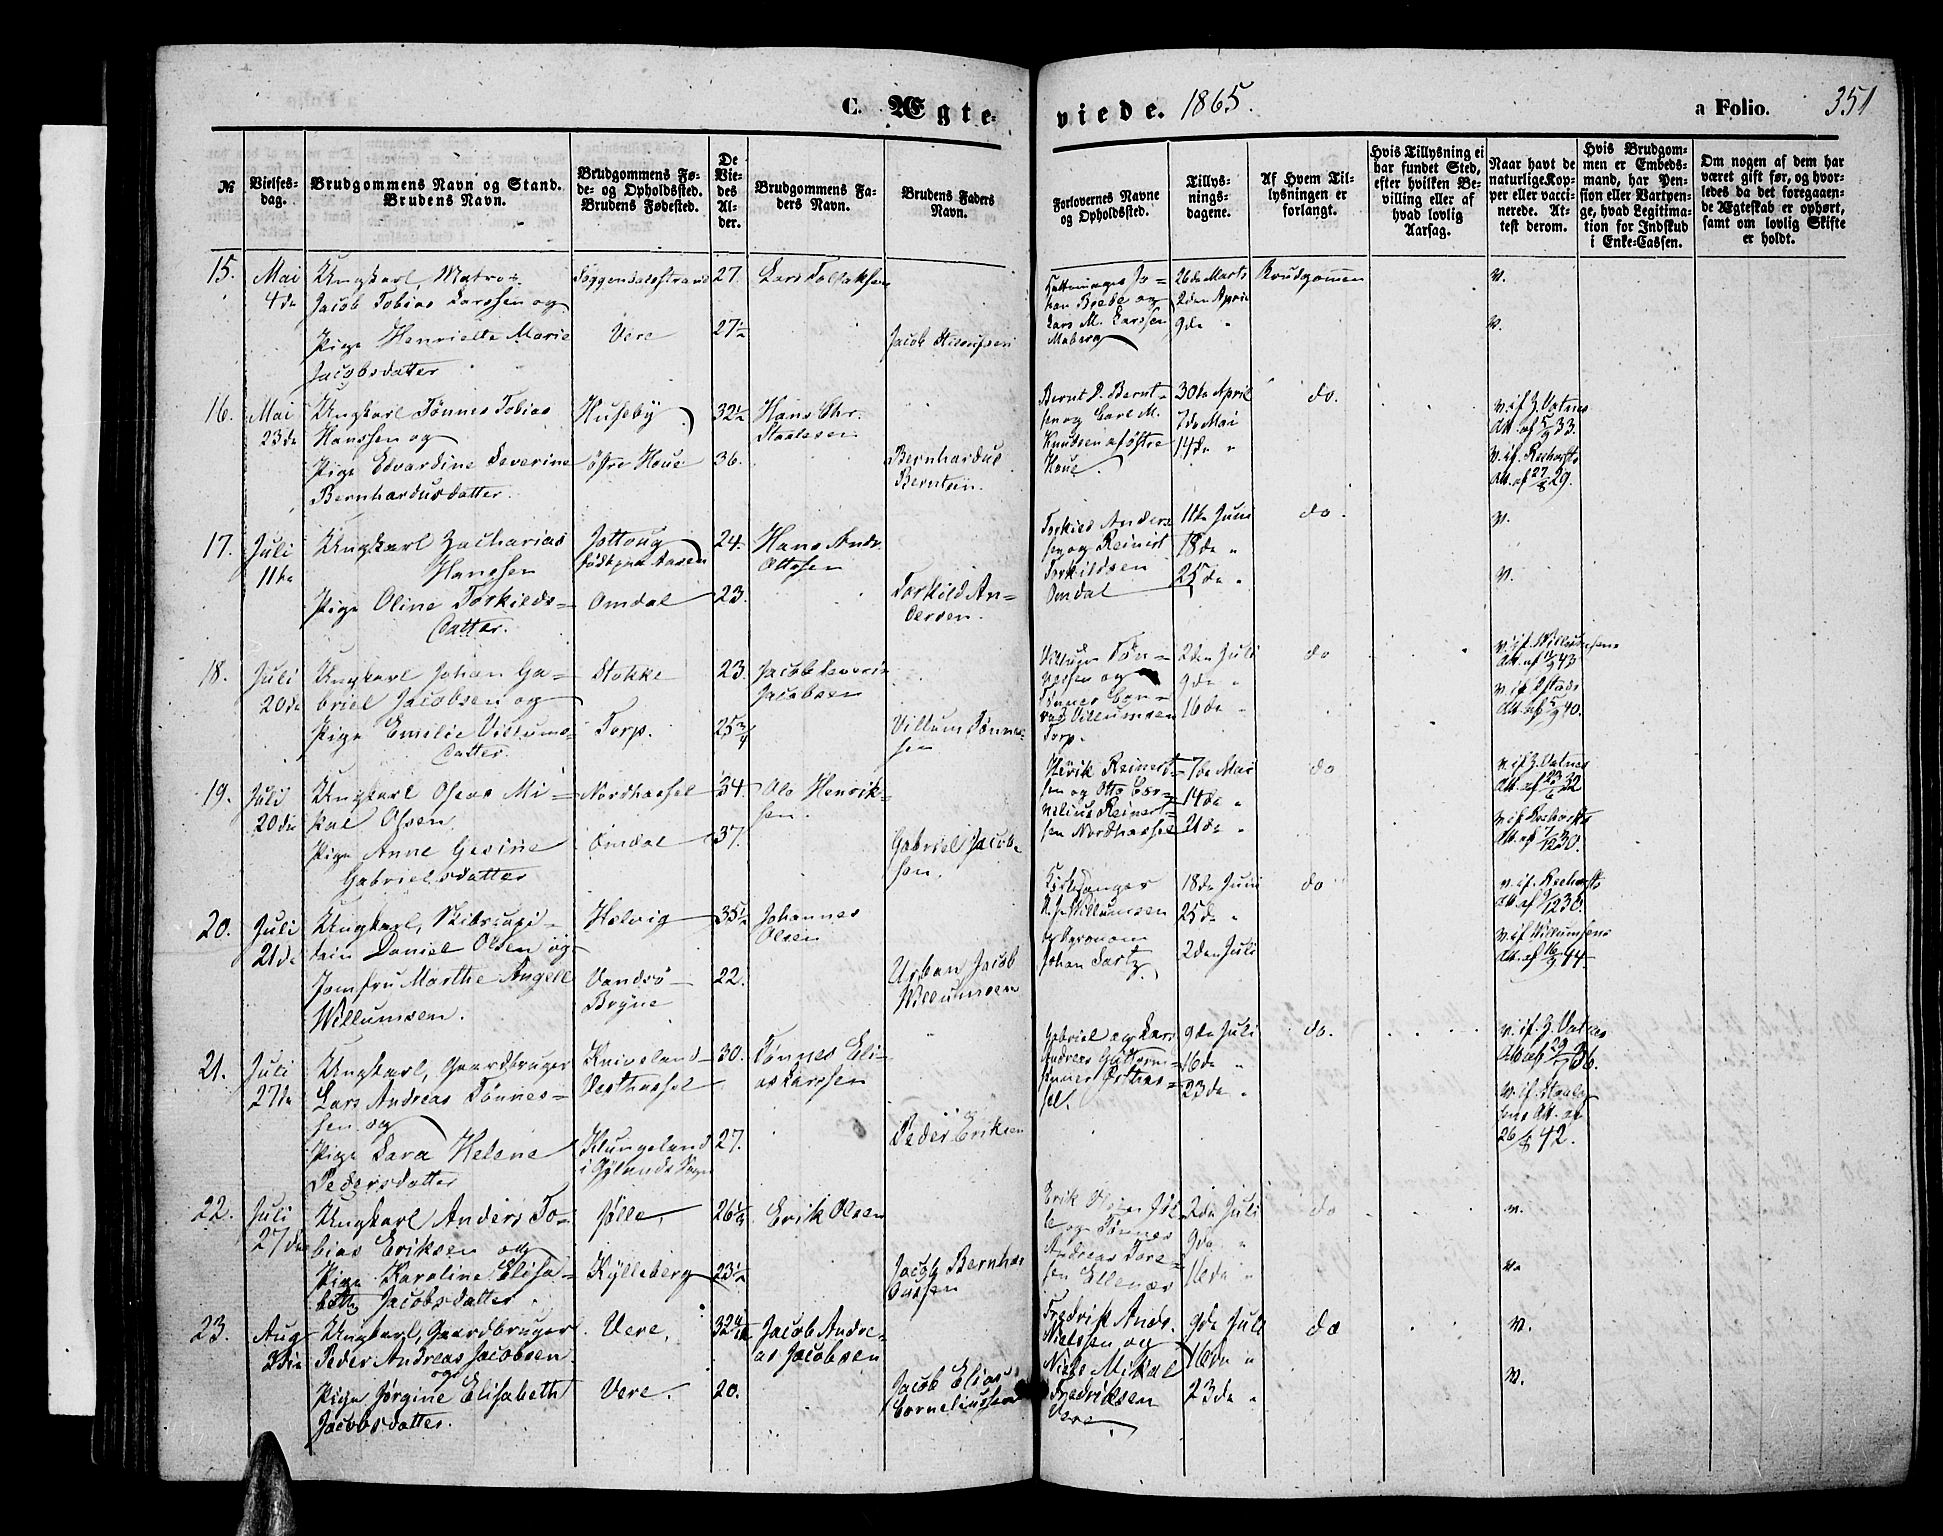 C. Ægte-
viede. 1865.
a Folio. 351
№
Vielses-
dag.
Brudgommens Navn og Stand.
Brudens Navn.
Brudgommens Fø-
de- og Opholdssted.
Brudens Fødested.
De
Vie-
des
Al-
der.
Brudgommens Fa-
ders Navn.
Brudens Faders
Navn.
Forlovernes Navne
og Opholdssted.
Tillys-
nings-
dagene.
Af Hvem Til-
lysningen er
forlangt.
Hvis Tillysning ei
har fundet Sted,
efter hvilken Be-
villing eller af
hvad lovlig
Aarsag.
Naar havt de
naturlige Kop-
per eller vacci-
nerede. At-
test derom.
Hvis Brudgom-
men er Embeds-
mand, har Pen-
sion eller Vartpen-
ge, hvad Legitima-
tion for Indskud
i Enke-Cassen.
Om nogen af dem har
været gift før, og hvor-
ledes da det foregaaen-
de Ægteskab er ophørt,
samt om lovlig Skifte
er holdt.
15.
Mai
4de
Ungkarl, Matros
Jacob Tobias Larssen og
Pige Henriette Marie
Jacobsdatter
Soggendalsstrand
Vere
27.
27½
Lars Tollaksen
Jacob
han Brede og
Lars M. Larssen
Maberg
26de Marts
2den April
9de "
Brudgommen
v.
v.
16.
Mai
23de
Ungkarl Tønnes Tobias
Hanssen og
Pige Edvardine Severine
Bernhardusdatter.
Huseby
Østre Houe
32½
36.
Hans Chr.
Staalesen
Bernhardus
Berntsen.
Bernt P. Bernt-
sen og Carl M.
Knudsen af Østre
Houe.
30te April
7de Mai
14de "
do.
v. if. Z. Vatnes
Att. af 5/9 33.
v. if.
Att. af 27/8 29.
17.
Juli
11te
Ungkarl Zacharias
Hanssen
Pige Oline Torkilds-
datter.
Jottoug
Omdal
24.
23.
Hans Andr.
Ottosen
Torkild An-
dersen.
Torkild Anders-
sen og Reinert
Torkildsen
Omdal
11te Juni
18de "
25de "
do.
v.
v.
18.
Juli
20de
Ungkarl Johan Ga-
briel Jacobsen og
Pige Emilie Villums-
datter
Stokke
Torp.
23.
25¾
Jacob
Jacobsen
Villum Tønnes-
sen
Villum Tøn-
nessen og
Tønnes Con-
rad Villumsen
Torp.
2den Juli
9de "
16de "
do
v. if. Willumsens
Att. af 43
v. if.
Att. af 40.
19.
Juli
20de
Ungkarl Oseas Mi-
kal Olsen.
Pige Anne Gesine
Gabrielsdatter
Nordhassel
Omdal
34.
37.
Ole Henrik-
sen.
Gabriel Jacob-
sen.
Reinert-
sen og Otto Cor-
nelius Reinert-
sen Nordhassel
7de Mai
14de "
21de "
do
v. if. Z. Vatnes
Att. af 23/6 32
v. if.
Att. af 7/12 30.
20.
Juli
21de
Ungkarl, Skibscapi-
tain Daniel Olsen og
Jomfru Marthe Angell
Willumsen.
Helvig
Vandsö
Bryne
35½
22.
Johannes
Olsen
Urban Jacob
Willumsen
Kirkesanger
U. J. Willumsen
Johan
18de Juni
25de "
2den Juli
do
v. if.
Att. af 30.
v. if. Willumsens
Att. af 16/9 44.
21.
Juli
27de
Ungkarl, Gaardbruger
Lars Andreas Tønnes-
sen og
Pige Sara Helene
Pedersdatter
Kniveland
Vesthassel
Klungeland
i Gylands Sogn
30.
27.
Tønnes Eli-
as Larssen
Peder Eriksen
Gabriel og Lars
Andreas Guttorm-
Østhas-
sel.
9de Juli
16de "
23de "
do.
v. if. Z. Vatnes
Att. af 36.
v. if.
Att. af
26/8 42.
22.
Juli
27de
Ungkarl Anders To-
bias Eriksen og
Pige Karoline Elisa-
beth Jacobsdatter.
Jølle,
Kylleberg
26½
23½
Erik Olsen
Jacob Bernhar-
dussen
Erik Olsen Jøl-
le og Tønnes
Andreas Tore-
sen Ellenæs
2den Juli
9de "
16de "
do
v.
v.
23.
Aug
Ungkarl, Gaardbruger
Peder Andreas Jacobsen
og
Pige Jørgine Elisabeth
Jacobsdatter.
Vere,
Vere.
20.
Jacob Andre-
as Jacobsen
Jacob Elias
Corneliussen
Fredrik Andr.
Nielssen og
Niels Mikal
Fredriksen
Vere
9de Juli
16de "
23de "
do
v.
v.